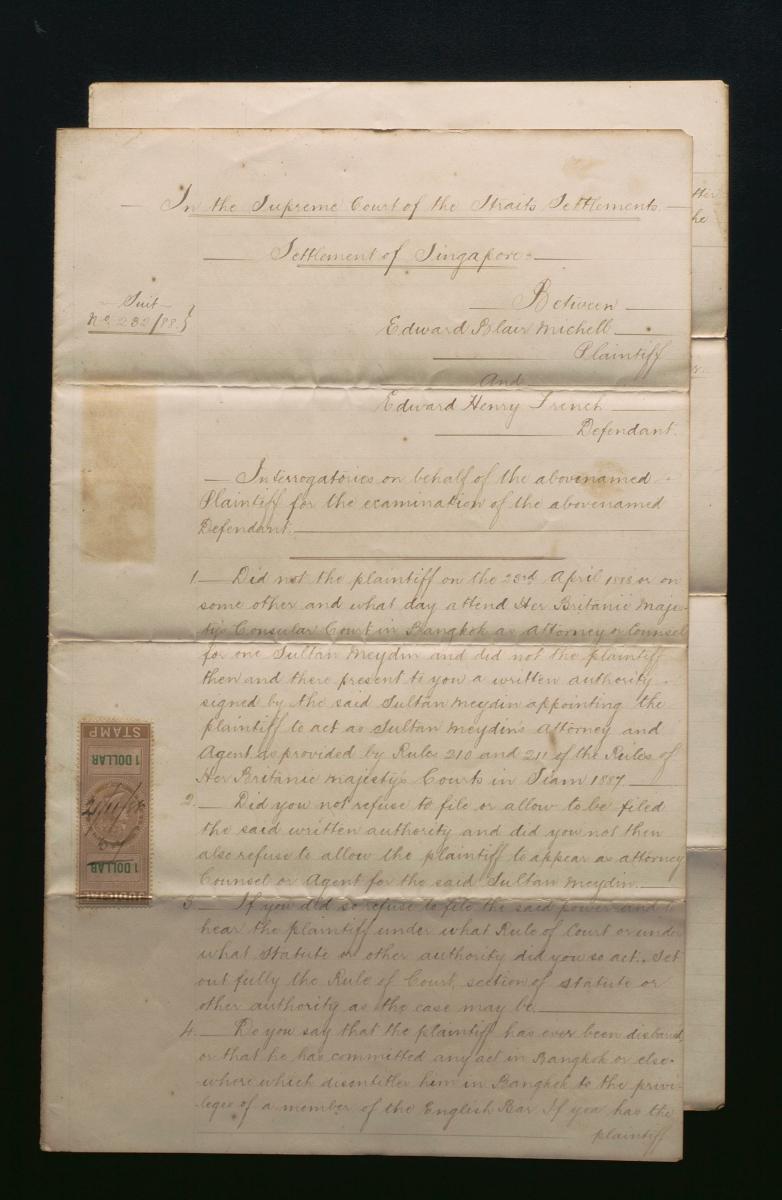 In the Supreme Court of the Straits Settlements.
Settlement of Singapore
Suit
No. 232/88.
Between
Edward Blair Michell
Plaintiff
And
Edward Henry French
Defendant.
Interrogatories on behalf of the abovenamed
Plaintiff for the examination of the abovenamed
Defendant.
1. Did not the plaintiff on the 23rd April 1888 or on
some other and what day attend Her Britanic Majes-
ty's Consular Court in Bangkok as attorney or Counsel
for one Sultan Meydin and did not the plaintiff
then and there present to you a written authority
signed by the said Sultan Meydin appointing the
plaintiff to act as Sultan Meydin's attorney and
Agent as provided by Rules 210 and 211 of the Rules of
Her Britanic Majesty's Courts in Siam 1887
2. Did you not refuse to file or allow to be filed
the said written authority and did you not then
also refuse to allow the plaintiff to appear as attorney
Counsel or Agent for the said Sultan Meydin.
3. If you did so refuse to file the said power and to
hear the plaintiff under what Rule of Court or under
what Statute or other authority did you so act. Set
out fully the Rule of Court, section of statute or
other authority as the case may be.
4. Do you say that the plaintiff has ever been disbarred
or that he has committed any act in Bangkok or else-
where which disentitles him in Bangkok to the privi-
leges of a member of the English Bar If yea has the
plaintiff
STAMP
1 DOLLAR
1 DOLLAR
JUDICIAL